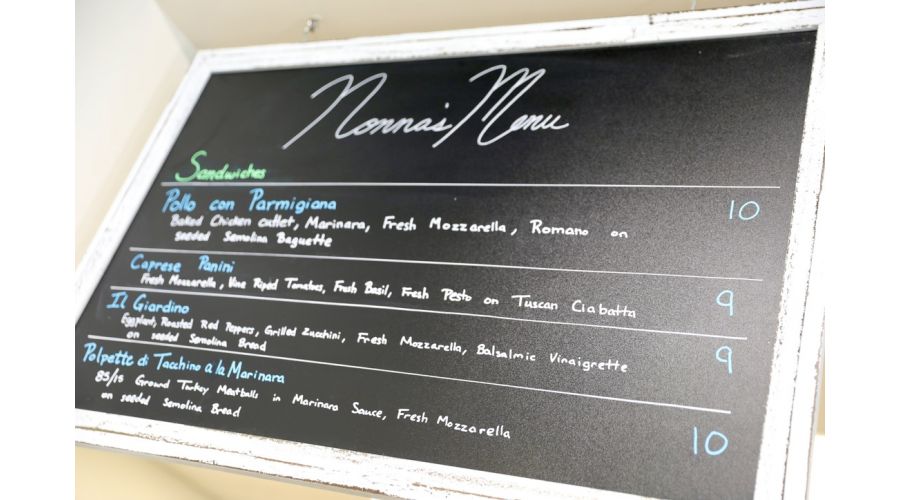 Nonna's Menu
Sandwiches
Pollo con Parmigiana 10
Baked Chicken cutlet, Marinara, Fresh Mozzarella, Romano on
seeded Semolina Baguette
Caprese Panini 9
Fresh Mozzarella, Vine Riped Tomatoes, Fresh Basil, Fresh Pesto on Tuscan Ciabatta
Il Giardino 9
Eggplant, Roasted Red Peppers, Grilled Zucchini, Fresh Mozzarella, Balsalmic Vinaigrette
on seeded Semolina Bread
Polpette di Tacchino a la Marinara 10
85/15 Ground Turkey Meatballs in Marinara Sauce, Fresh Mozzarella
on seeded Semolina Bread